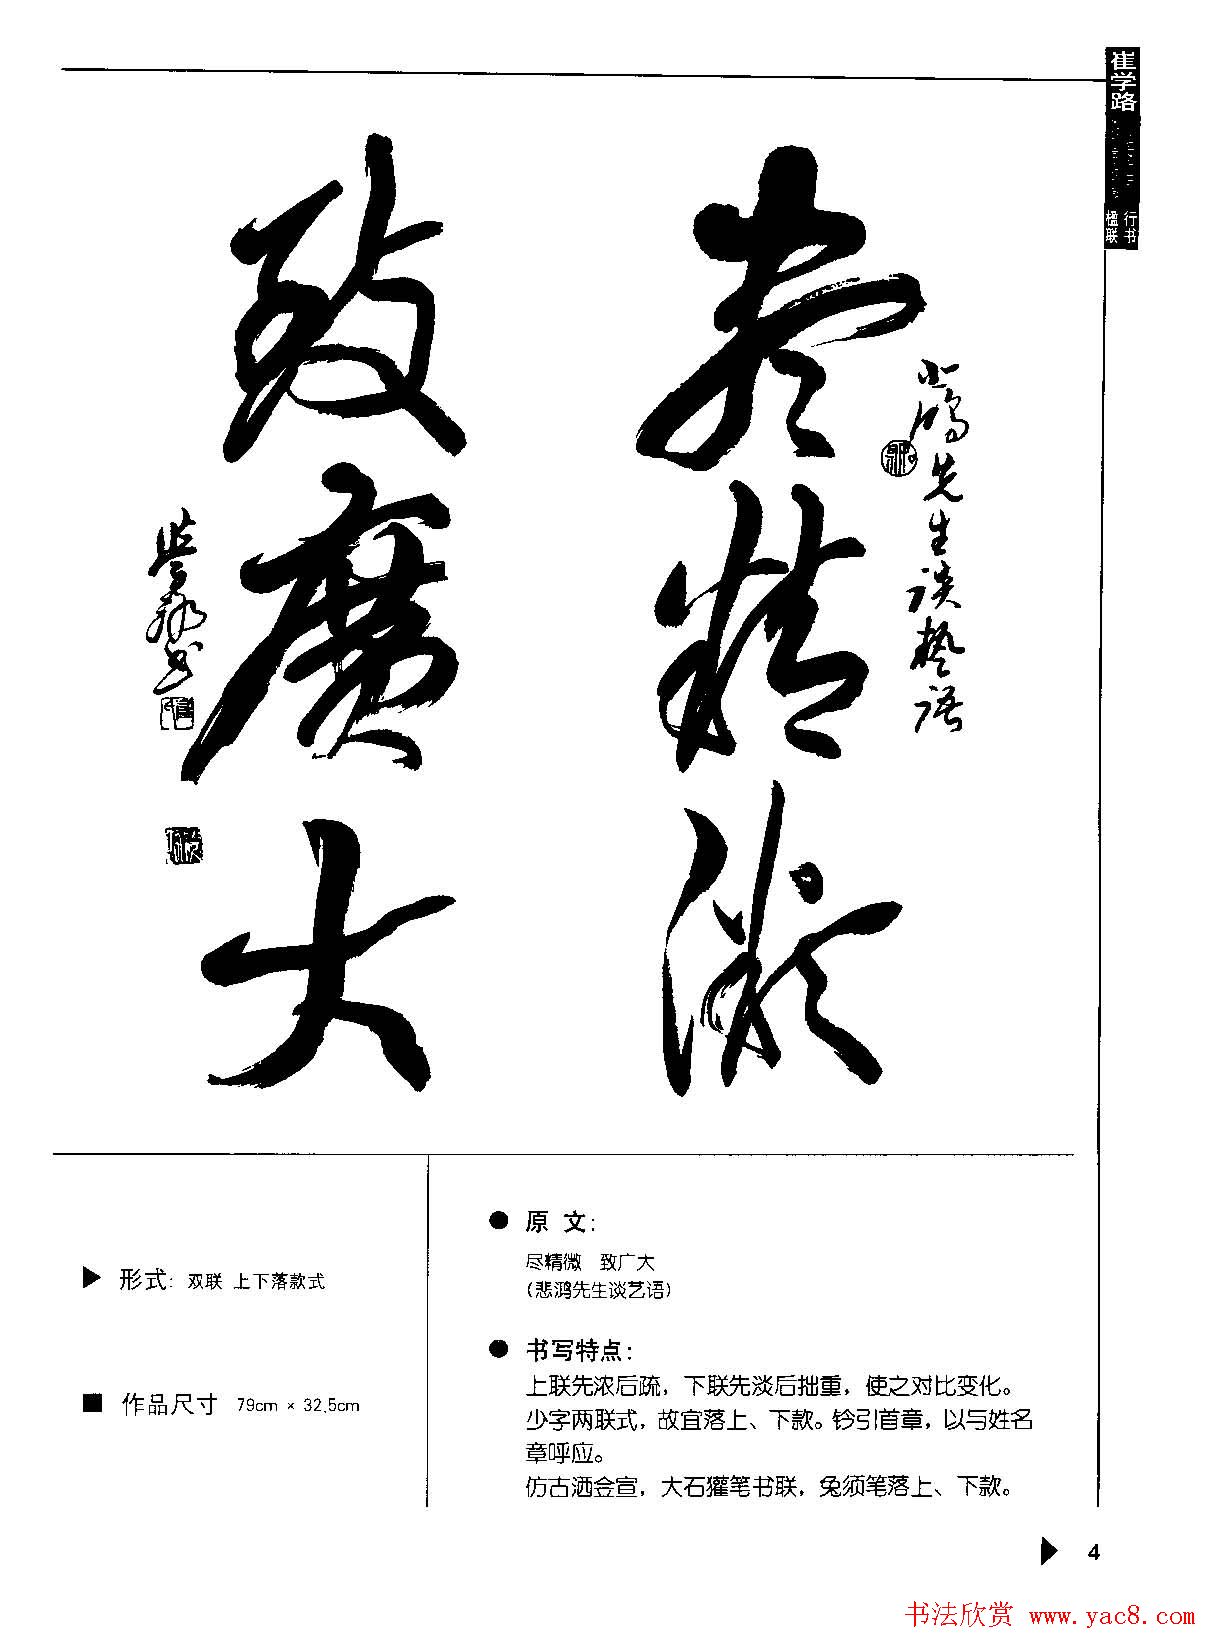 崔学路
行书
楹联
尽精微
悲鸿先生谈艺语
致廣大
学路书
▶ 形式: 双联 上下落款式
■ 作品尺寸 79cm × 32.5cm
● 原 文:
尽精微 致广大
(悲鸿先生谈艺语)
● 书写特点:
上联先浓后疏, 下联先淡后拙重, 使之对比变化。
少字两联式, 故宜落上、下款。钤引首章, 以与姓名
章呼应。
仿古洒金宣, 大石獾笔书联, 兔须笔落上、下款。
4
书法欣赏 www.yac8.com